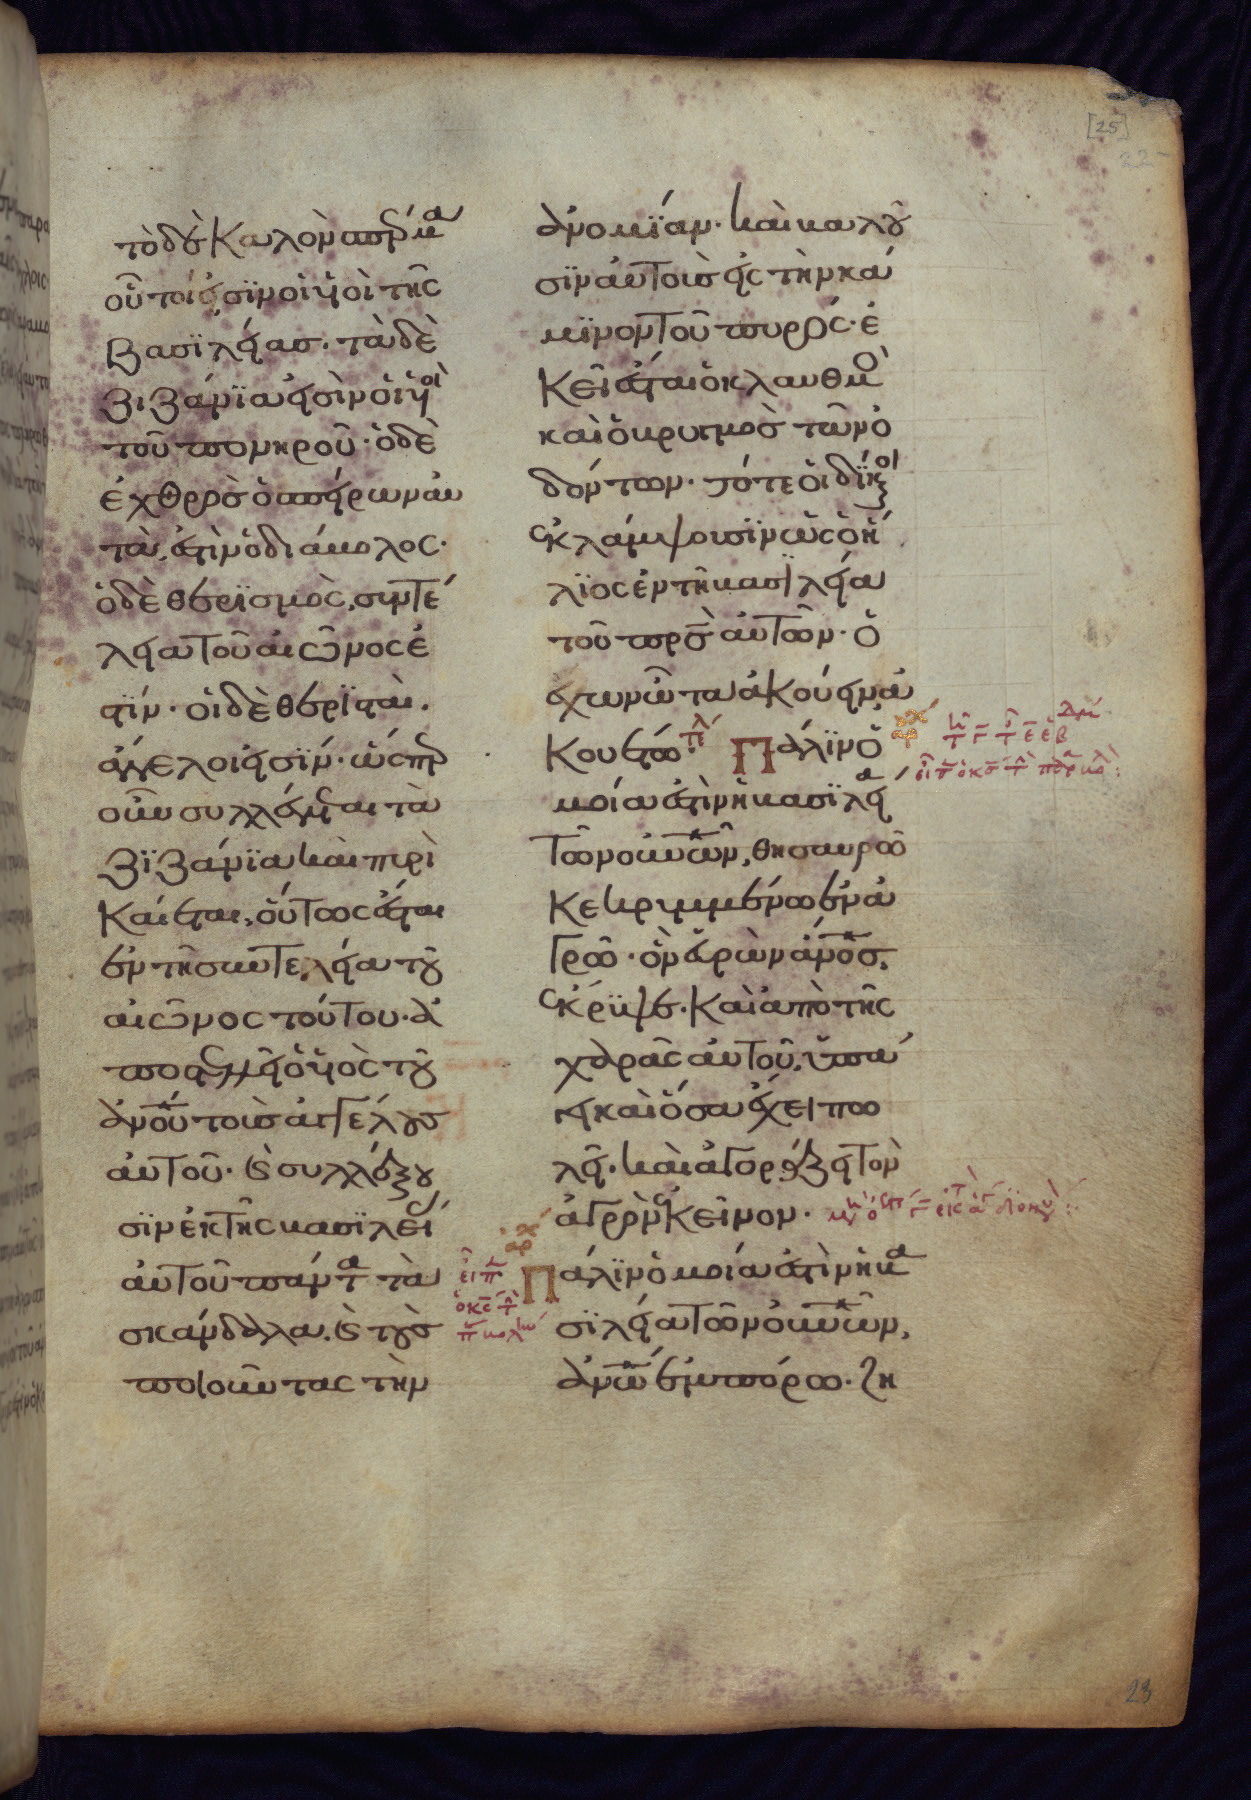 τὸ δὲ καλὸν σπέρμα
οὗτοι εἰσϊν οἱ υἱοὶ τῆς
βασϊλείας· τὰ δὲ
ζιζάνϊα εἰσὶν οἱ υἱοὶ
τοῦ πονηροῦ· ὁ δὲ
ἐχθρὸς ὁ σπείρων αὐ
τὰ, ἐστὶν ὁ διάβολος·
ὁ δὲ θερϊσμὸς, συντέ
λεια τοῦ αἰῶνος ἐ
στϊν· οἱ δὲ θερϊσταὶ,
ἄγγελοι εἰσϊν· ὥσπερ
οὖν συλλέγεται τὰ
ζϊζάνϊα καὶ πυρὶ
καίεται, οὕτως ἔσται
ἐν τῆ συντελεία τοῦ
αἰῶνος τούτου· ἀ
ποστελεῖ ὁ υἱὸς τοῦ
ἀνοῦ τοὺς ἀγγέλους
αὐτοῦ· καὶ συλλέξου
σϊν ἐκ τῆς βασϊλείας
αὐτοῦ πάντα τὰ
σκάνδαλα, καὶ τοὺς
ποιοῦντας τὴν
ἀνομϊαν· καὶ βαλοῦ
σϊν αὐτοὺς εἰς τὴν κά
μϊνον τοῦ πυρός· ἐ
κεῖ ἔσται ὁ κλαυθμὸς
καὶ ὁ βρυγμὸς τῶν ὀ
δόντων· τότε οἱ δίκαιοι
ἐκλάμψουσϊν ὡς ὁ ἥ
λϊος ἐν τῆ βασϊλεία
τοῦ πρσ αὐτῶν· ὁ
ἔχων ὦτα ἀκούειν ἀ
κουέτω· Πάλϊν ὁ
μοία ἐστὶν ἡ βασϊλεία
τῶν οὐνῶν, θησαυρῶ
κεκρυμμένω ἐν ἀ
γρῶ· ὃν εὑρὼν ἄνος,
ἔκρϋψε· καὶ ἀπὸ τῆς
χαρᾶς αὐτοῦ, ὑπά
γει καὶ ὅσα ἔχει πω
λεῖ· καὶ ἀγοράζει τὸν
ἀγρὸν ἐκεῖνον·
Πάλϊν ὁμοία ἐστὶν ἡ βα
σϊλεία τῶν οὐνῶν,
ἀνῶ ἐμπόρω· ζη
[25]
22
23